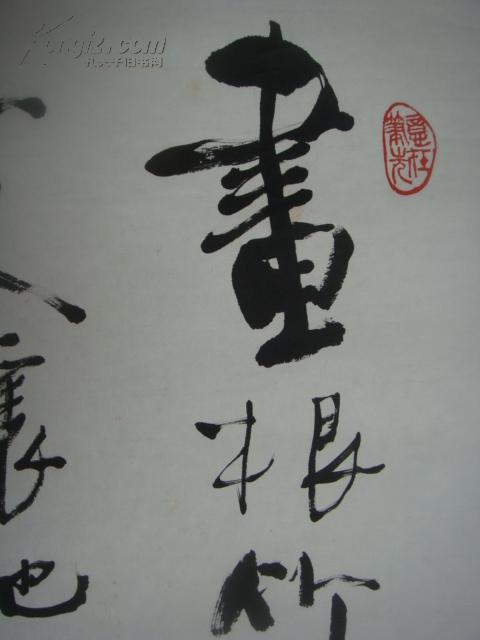 Kongfz.com
孔夫子旧书网
意在筆先
畫根竹
也